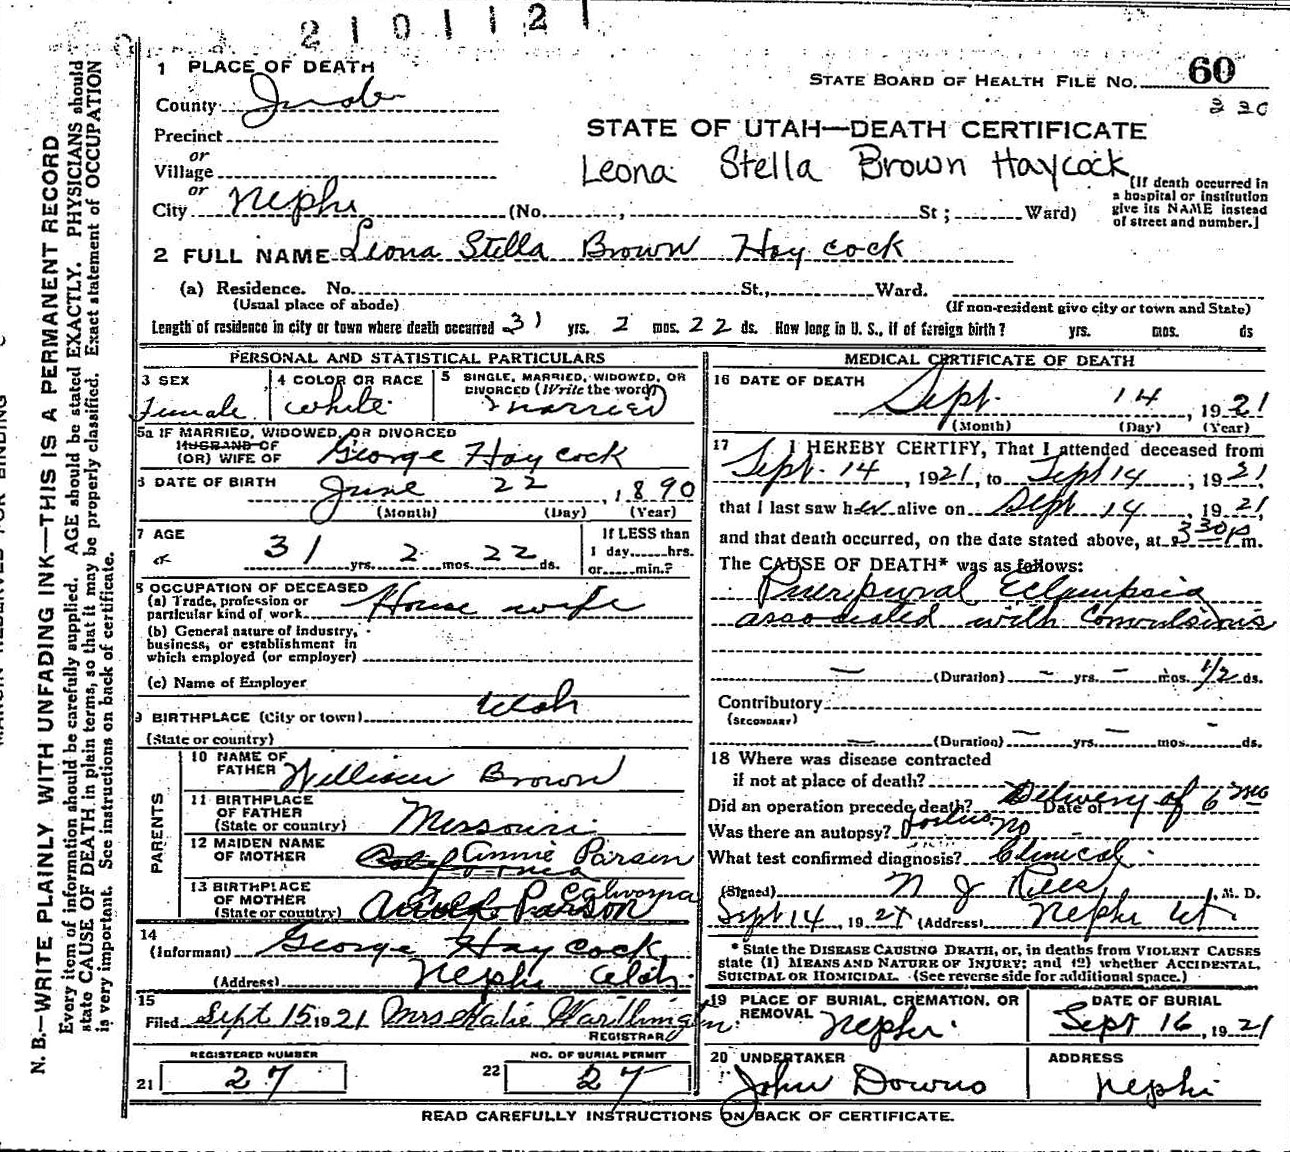 2 1 0 1 1 2 1
1 PLACE OF DEATH
STATE BOARD OF HEALTH FILE NO. 60
County Juab
330
Precinct
STATE OF UTAH—DEATH CERTIFICATE
or
Village
Leona Stella Brown Haycock
or
City Nephi (No. , St ; Ward)
(If death occurred in a hospital or institution give its NAME instead of street and number.]
2 FULL NAME Leona Stella Brown Haycock
(a) Residence. No. St., Ward.
(Usual place of abode) (If non-resident give city or town and State)
Length of residence in city or town where death occurred 31 yrs. 2 mos. 22 ds. How long in U. S., if of foreign birth? yrs. mos. ds
PERSONAL AND STATISTICAL PARTICULARS
3 SEX
Female
4 COLOR OR RACE
White
5 SINGLE, MARRIED, WIDOWED, OR DIVORCED (Write the word)
Married
5a IF MARRIED, WIDOWED, OR DIVORCED
HUSBAND OF
(OR) WIFE OF George Haycock
6 DATE OF BIRTH June 22, 1890
(Month) (Day) (Year)
7 AGE
31 yrs. 2 mos. 22 ds.
If LESS than
1 day......hrs.
or......min.?
8 OCCUPATION OF DECEASED
(a) Trade, profession or
particular kind of work House wife
(b) General nature of industry,
business, or establishment in
which employed (or employer)
(c) Name of Employer
9 BIRTHPLACE (City or town) Utah
(State or country)
PARENTS
10 NAME OF
FATHER William Brown
11 BIRTHPLACE
OF FATHER
(State or country) Missouri
12 MAIDEN NAME
OF MOTHER Annie Parson
13 BIRTHPLACE
OF MOTHER
(State or country) California
Parson
14
(Informant) George Haycock
(Address) Nephi Utah
15
Filed Sept 15 1921 Mrs Katie Warthington
REGISTRAR
REGISTERED NUMBER
21 27
NO. OF BURIAL PERMIT
22 27
MEDICAL CERTIFICATE OF DEATH
16 DATE OF DEATH
Sept. 14, 1921
(Month) (Day) (Year)
17 I HEREBY CERTIFY, That I attended deceased from
Sept. 14, 1921, to Sept 14, 1921
that I last saw her alive on Sept 14, 1921,
and that death occurred, on the date stated above, at 330 P m.
The CAUSE OF DEATH* was as follows:
Puerpural Eclampsia
associated with Convulsions
(Duration) yrs. mos. 1/2 ds.
Contributory
(SECONDARY)
(Duration) yrs. mos. ds.
18 Where was disease contracted
if not at place of death?
Did an operation precede death? Delivery of 6 mo Date of
foetus
Was there an autopsy? no
What test confirmed diagnosis? Clinical
(Signed) N J Rees, M. D.
Sept 14, 1921 (Address) Nephi Ut
* State the DISEASE CAUSING DEATH, or, in deaths from VIOLENT CAUSES
state (1) MEANS AND NATURE OF INJURY; and (2) whether ACCIDENTAL,
SUICIDAL OR HOMICIDAL. (See reverse side for additional space.)
19 PLACE OF BURIAL, CREMATION, OR
REMOVAL Nephi.
DATE OF BURIAL
Sept 16, 1921
20 UNDERTAKER
John Downs
ADDRESS
Nephi
READ CAREFULLY INSTRUCTIONS ON BACK OF CERTIFICATE.
N. B.—WRITE PLAINLY WITH UNFADING INK—THIS IS A PERMANENT RECORD
Every item of information should be carefully supplied. AGE should be stated EXACTLY. PHYSICIANS should
state CAUSE OF DEATH in plain terms, so that it may be properly classified. Exact statement of OCCUPATION
is very important. See instructions on back of certificate.